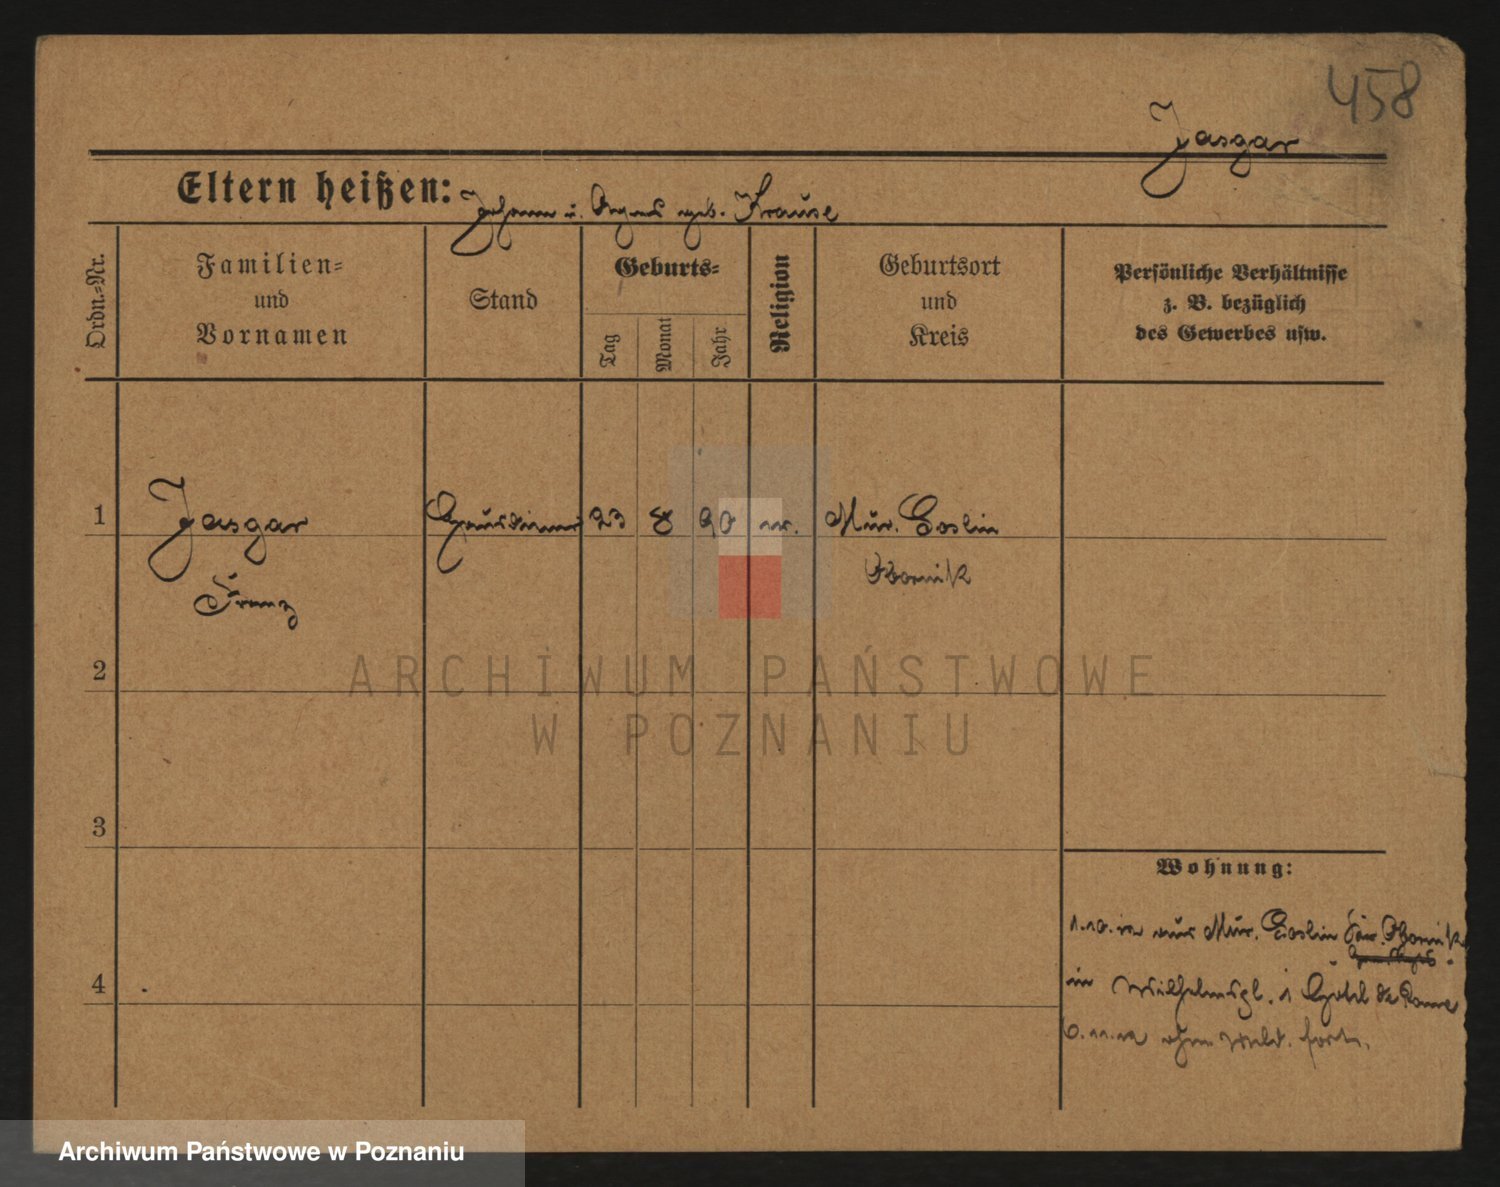 458
Jasgar
Eltern heißen: Johann u. Agnes geb. Krause
Ordn.-Nr.
Familien-
und
Vornamen
Stand
Geburts-
Tag
Monat
Jahr
Religion
Geburtsort
und
Kreis
Persönliche Verhältnisse
z. B. bezüglich
des Gewerbes usw.
1 Jasgar Hausdiener 23 8 90 Mur. Goslin
Franz Obornik
2
ARCHIWUM PAŃSTWOWE
W POZNANIU
3
Wohnung:
1.10.12 aus Mur. Goslin Obornik
4
in Wilhelmspl. 1 Hotel de Rome
6.11.12 ohne Meld. fort.
Archiwum Państwowe w Poznaniu